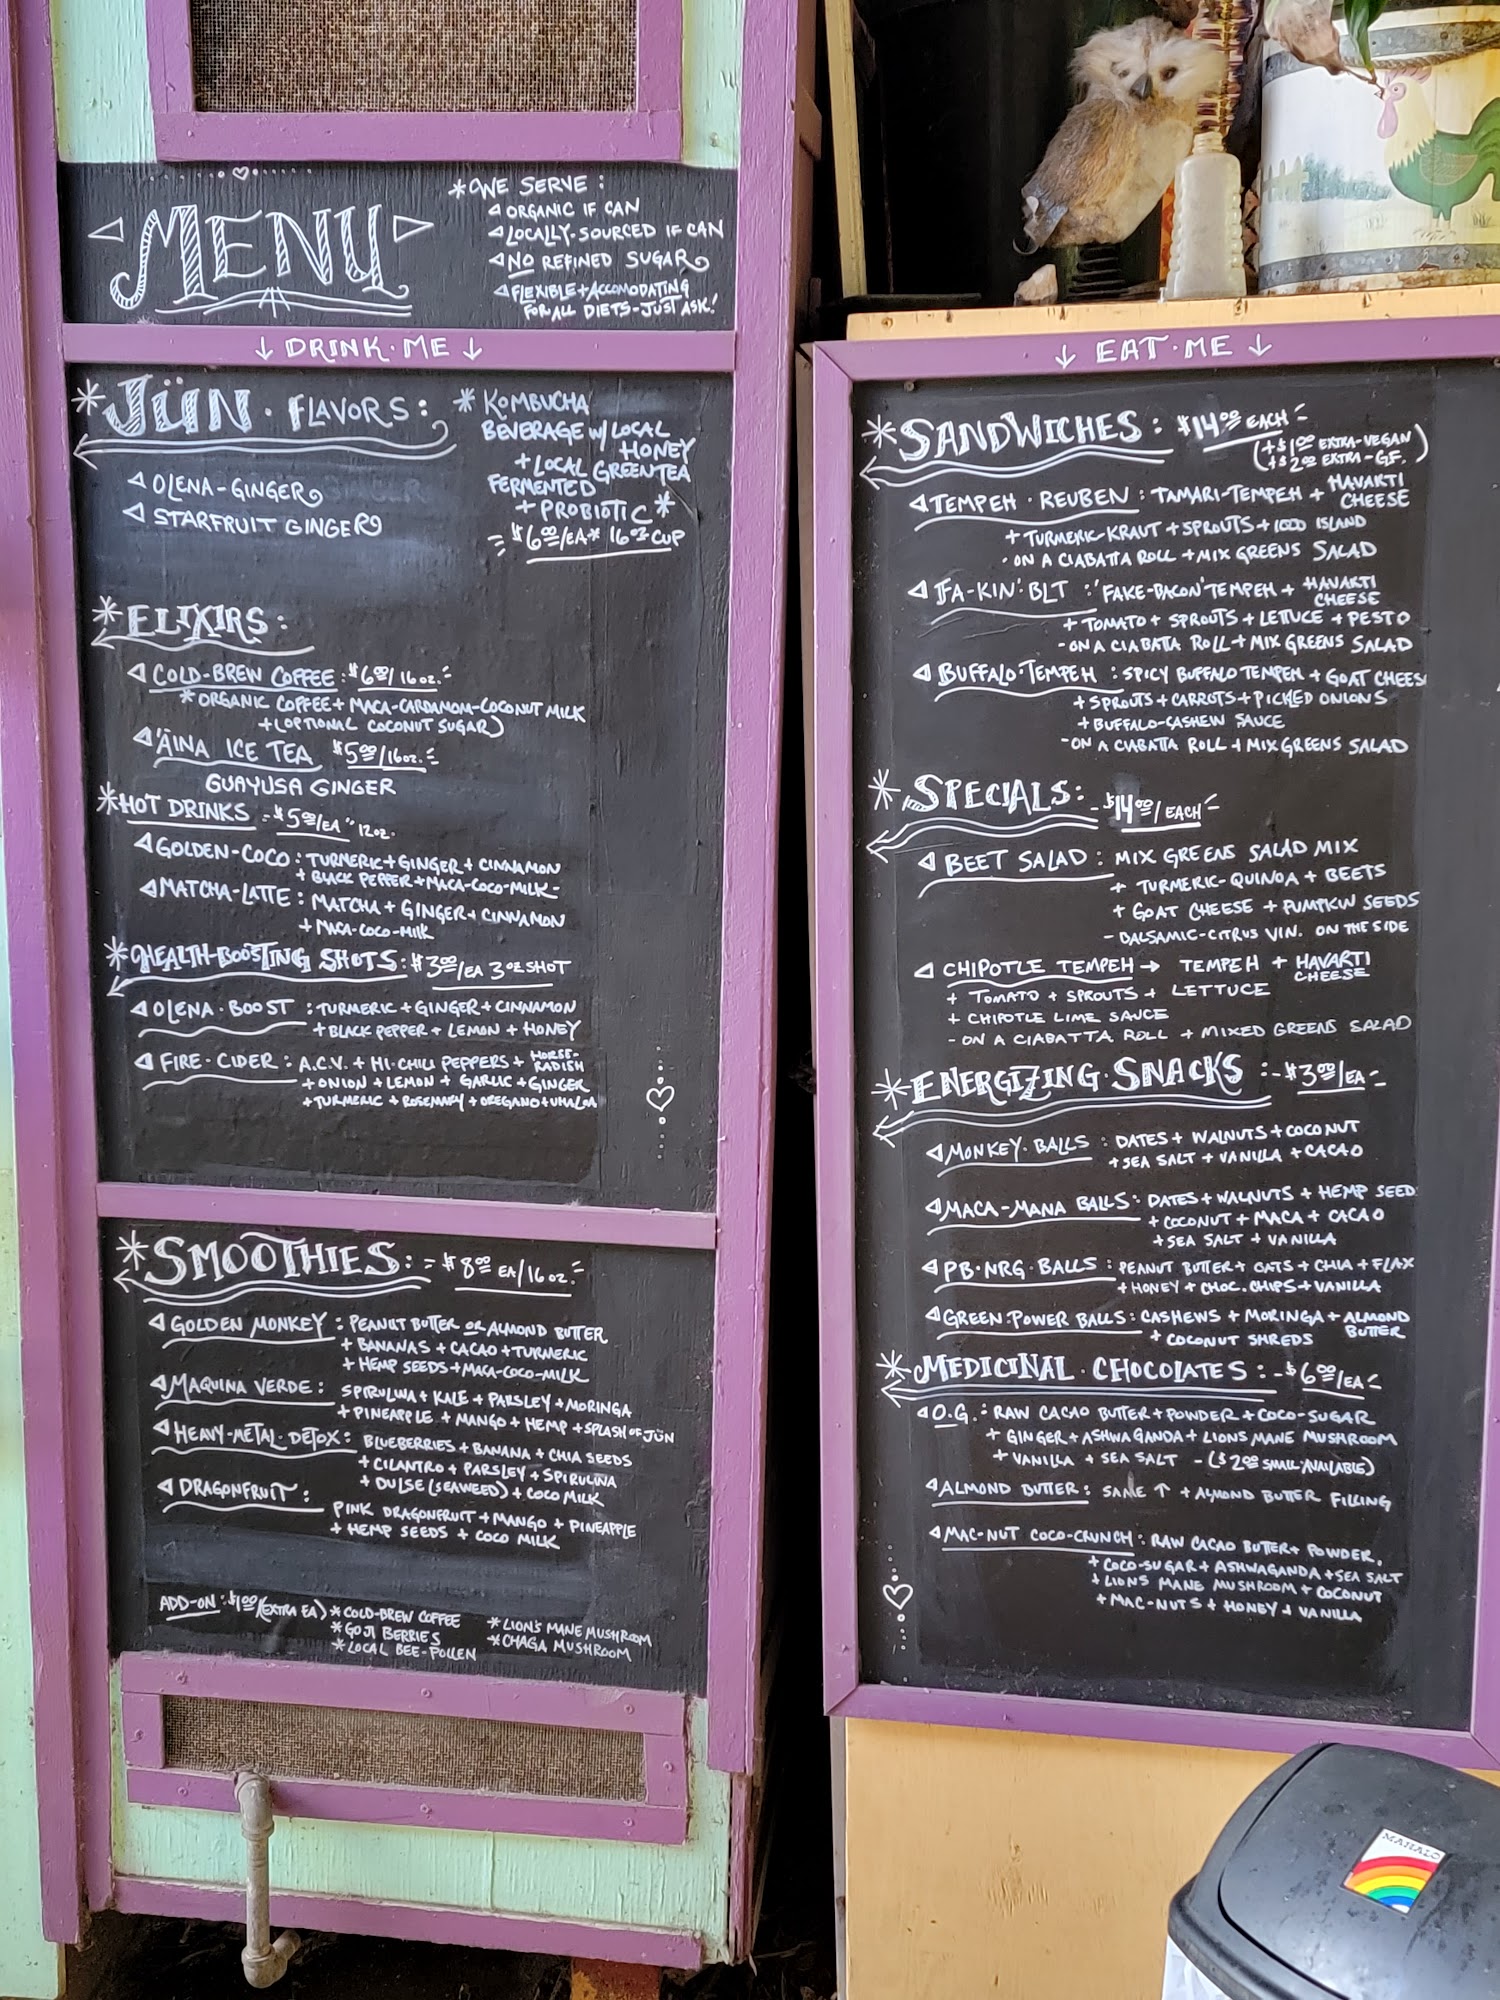 MENU
*WE SERVE:
ORGANIC IF CAN
LOCALLY-SOURCED IF CAN
NO REFINED SUGAR
FLEXIBLE + ACCOMODATING
FOR ALL DIETS - JUST ASK!
↓ DRINK·ME ↓
*JÜN·FLAVORS:
OLENA-GINGER
STARFRUIT GINGER
*KOMBUCHA
BEVERAGE W/ LOCAL
HONEY
+ LOCAL GREEN TEA
FERMENTED
+ PROBIOTIC*
$6.00/EA* 16oz CUP
*ELIXIRS:
COLD-BREW COFFEE: $6.00/16oz.
*ORGANIC COFFEE + MACA-CARDAMOM-COCONUT MILK
+ (OPTIONAL COCONUT SUGAR)
'ĀINA ICE TEA $5.00/16oz.
GUAYUSA GINGER
*HOT DRINKS - $5.00/EA "12oz.
GOLDEN-COCO: TURMERIC + GINGER + CINNAMON
+ BLACK PEPPER + MACA-COCO-MILK-
MATCHA-LATTE: MATCHA + GINGER + CINNAMON
+ MACA-COCO-MILK
*HEALTH-BOOSTING SHOTS: $3.00/EA 3oz SHOT
OLENA·BOOST: TURMERIC + GINGER + CINNAMON
+ BLACK PEPPER + LEMON + HONEY
FIRE-CIDER: A.C.V. + HI-CHILI PEPPERS + HORSE-
RADISH
+ ONION + LEMON + GARLIC + GINGER
+ TURMERIC + ROSEMARY + OREGANO +
*SMOOTHIES: = $8.00 EA/16oz.
GOLDEN MONKEY: PEANUT BUTTER OR ALMOND BUTTER
+ BANANAS + CACAO + TURMERIC
+ HEMP SEEDS + MACA-COCO-MILK
MAQUINA VERDE: SPIRULINA + KALE + PARSLEY + MORINGA
+ PINEAPPLE + MANGO + HEMP + SPLASH OF JÜN
HEAVY-METAL-DETOX: BLUEBERRIES + BANANA + CHIA SEEDS
+ CILANTRO + PARSLEY + SPIRULINA
+ DULSE (SEAWEED) + COCO MILK
DRAGONFRUIT: PINK DRAGONFRUIT + MANGO + PINEAPPLE
+ HEMP SEEDS + COCO MILK
ADD-ON: $1.00 (EXTRA EA) *COLD-BREW COFFEE *LION'S MANE MUSHROOM
*GOJI BERRIES *CHAGA MUSHROOM
*LOCAL BEE-POLLEN
↓ EAT·ME ↓
*SANDWICHES: $14.00 EACH
(+$1.00 EXTRA-VEGAN
+$2.00 EXTRA-GF.)
TEMPEH·REUBEN: TAMARI-TEMPEH + HAVARTI
CHEESE
+ TURMERIC-KRAUT + SPROUTS + 1000 ISLAND
- ON A CIABATTA ROLL + MIX GREENS SALAD
FA-KIN' BLT: 'FAKE-BACON' TEMPEH + HAVARTI
CHEESE
+ TOMATO + SPROUTS + LETTUCE + PESTO
- ON A CIABATTA ROLL + MIX GREENS SALAD
BUFFALO·TEMPEH: SPICY BUFFALO TEMPEH + GOAT CHEES
+ SPROUTS + CARROTS + PICKLED ONIONS
+ BUFFALO-CASHEW SAUCE
- ON A CIABATTA ROLL + MIX GREENS SALAD
*SPECIALS: - $14.00/EACH
BEET SALAD: MIX GREENS SALAD MIX
+ TURMERIC-QUINOA + BEETS
+ GOAT CHEESE + PUMPKIN SEEDS
- BALSAMIC-CITRUS VIN. ON THE SIDE
CHIPOTLE TEMPEH → TEMPEH + HAVARTI
CHEESE
+ TOMATO + SPROUTS + LETTUCE
+ CHIPOTLE LIME SAUCE
- ON A CIABATTA ROLL + MIXED GREENS SALAD
*ENERGIZING·SNACKS: - $3.00/EA-
MONKEY·BALLS: DATES + WALNUTS + COCONUT
+ SEA SALT + VANILLA + CACAO
MACA-MANA BALLS: DATES + WALNUTS + HEMP SEED
+ COCONUT + MACA + CACAO
+ SEA SALT + VANILLA
PB·NRG·BALLS: PEANUT BUTTER + OATS + CHIA + FLAX
+ HONEY + CHOC. CHIPS + VANILLA
GREEN·POWER BALLS: CASHEWS + MORINGA + ALMOND
BUTTER
+ COCONUT SHREDS
*MEDICINAL·CHOCOLATES: - $6.00/EA
O.G.: RAW CACAO BUTTER + POWDER + COCO-SUGAR
+ GINGER + ASHWAGANDA + LIONS MANE MUSHROOM
+ VANILLA + SEA SALT - ($2.00 SMALL-AVAILABLE)
ALMOND BUTTER: SAME ↑ + ALMOND BUTTER FILLING
MAC-NUT COCO-CRUNCH: RAW CACAO BUTTER + POWDER
+ COCO-SUGAR + ASHWAGANDA + SEA SALT
+ LIONS MANE MUSHROOM + COCONUT
+ MAC-NUTS + HONEY + VANILLA
MAHALO